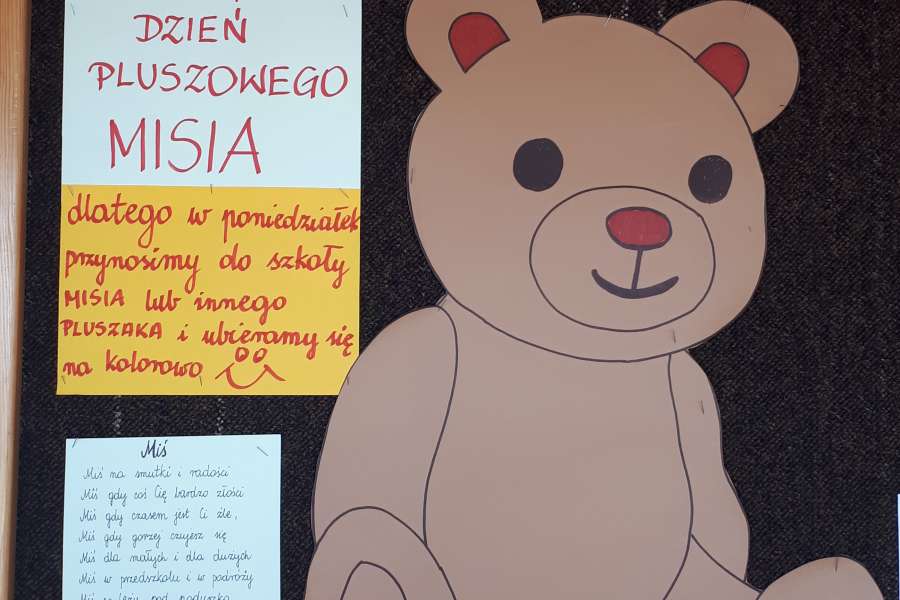 DZIEŃ
PLUSZOWEGO
MISIA
dlatego w poniedziałek
przynosimy do szkoły
MISIA lub innego
PLUSZAKA i ubieramy się
na kolorowo
Miś
Miś na smutki i radości
Miś gdy coś Cię bardzo złości
Miś gdy czasem jest Ci źle,
Miś gdy gorzej czujesz się
Miś dla małych i dla dużych
Miś w przedszkolu i w podróży
Miś pod